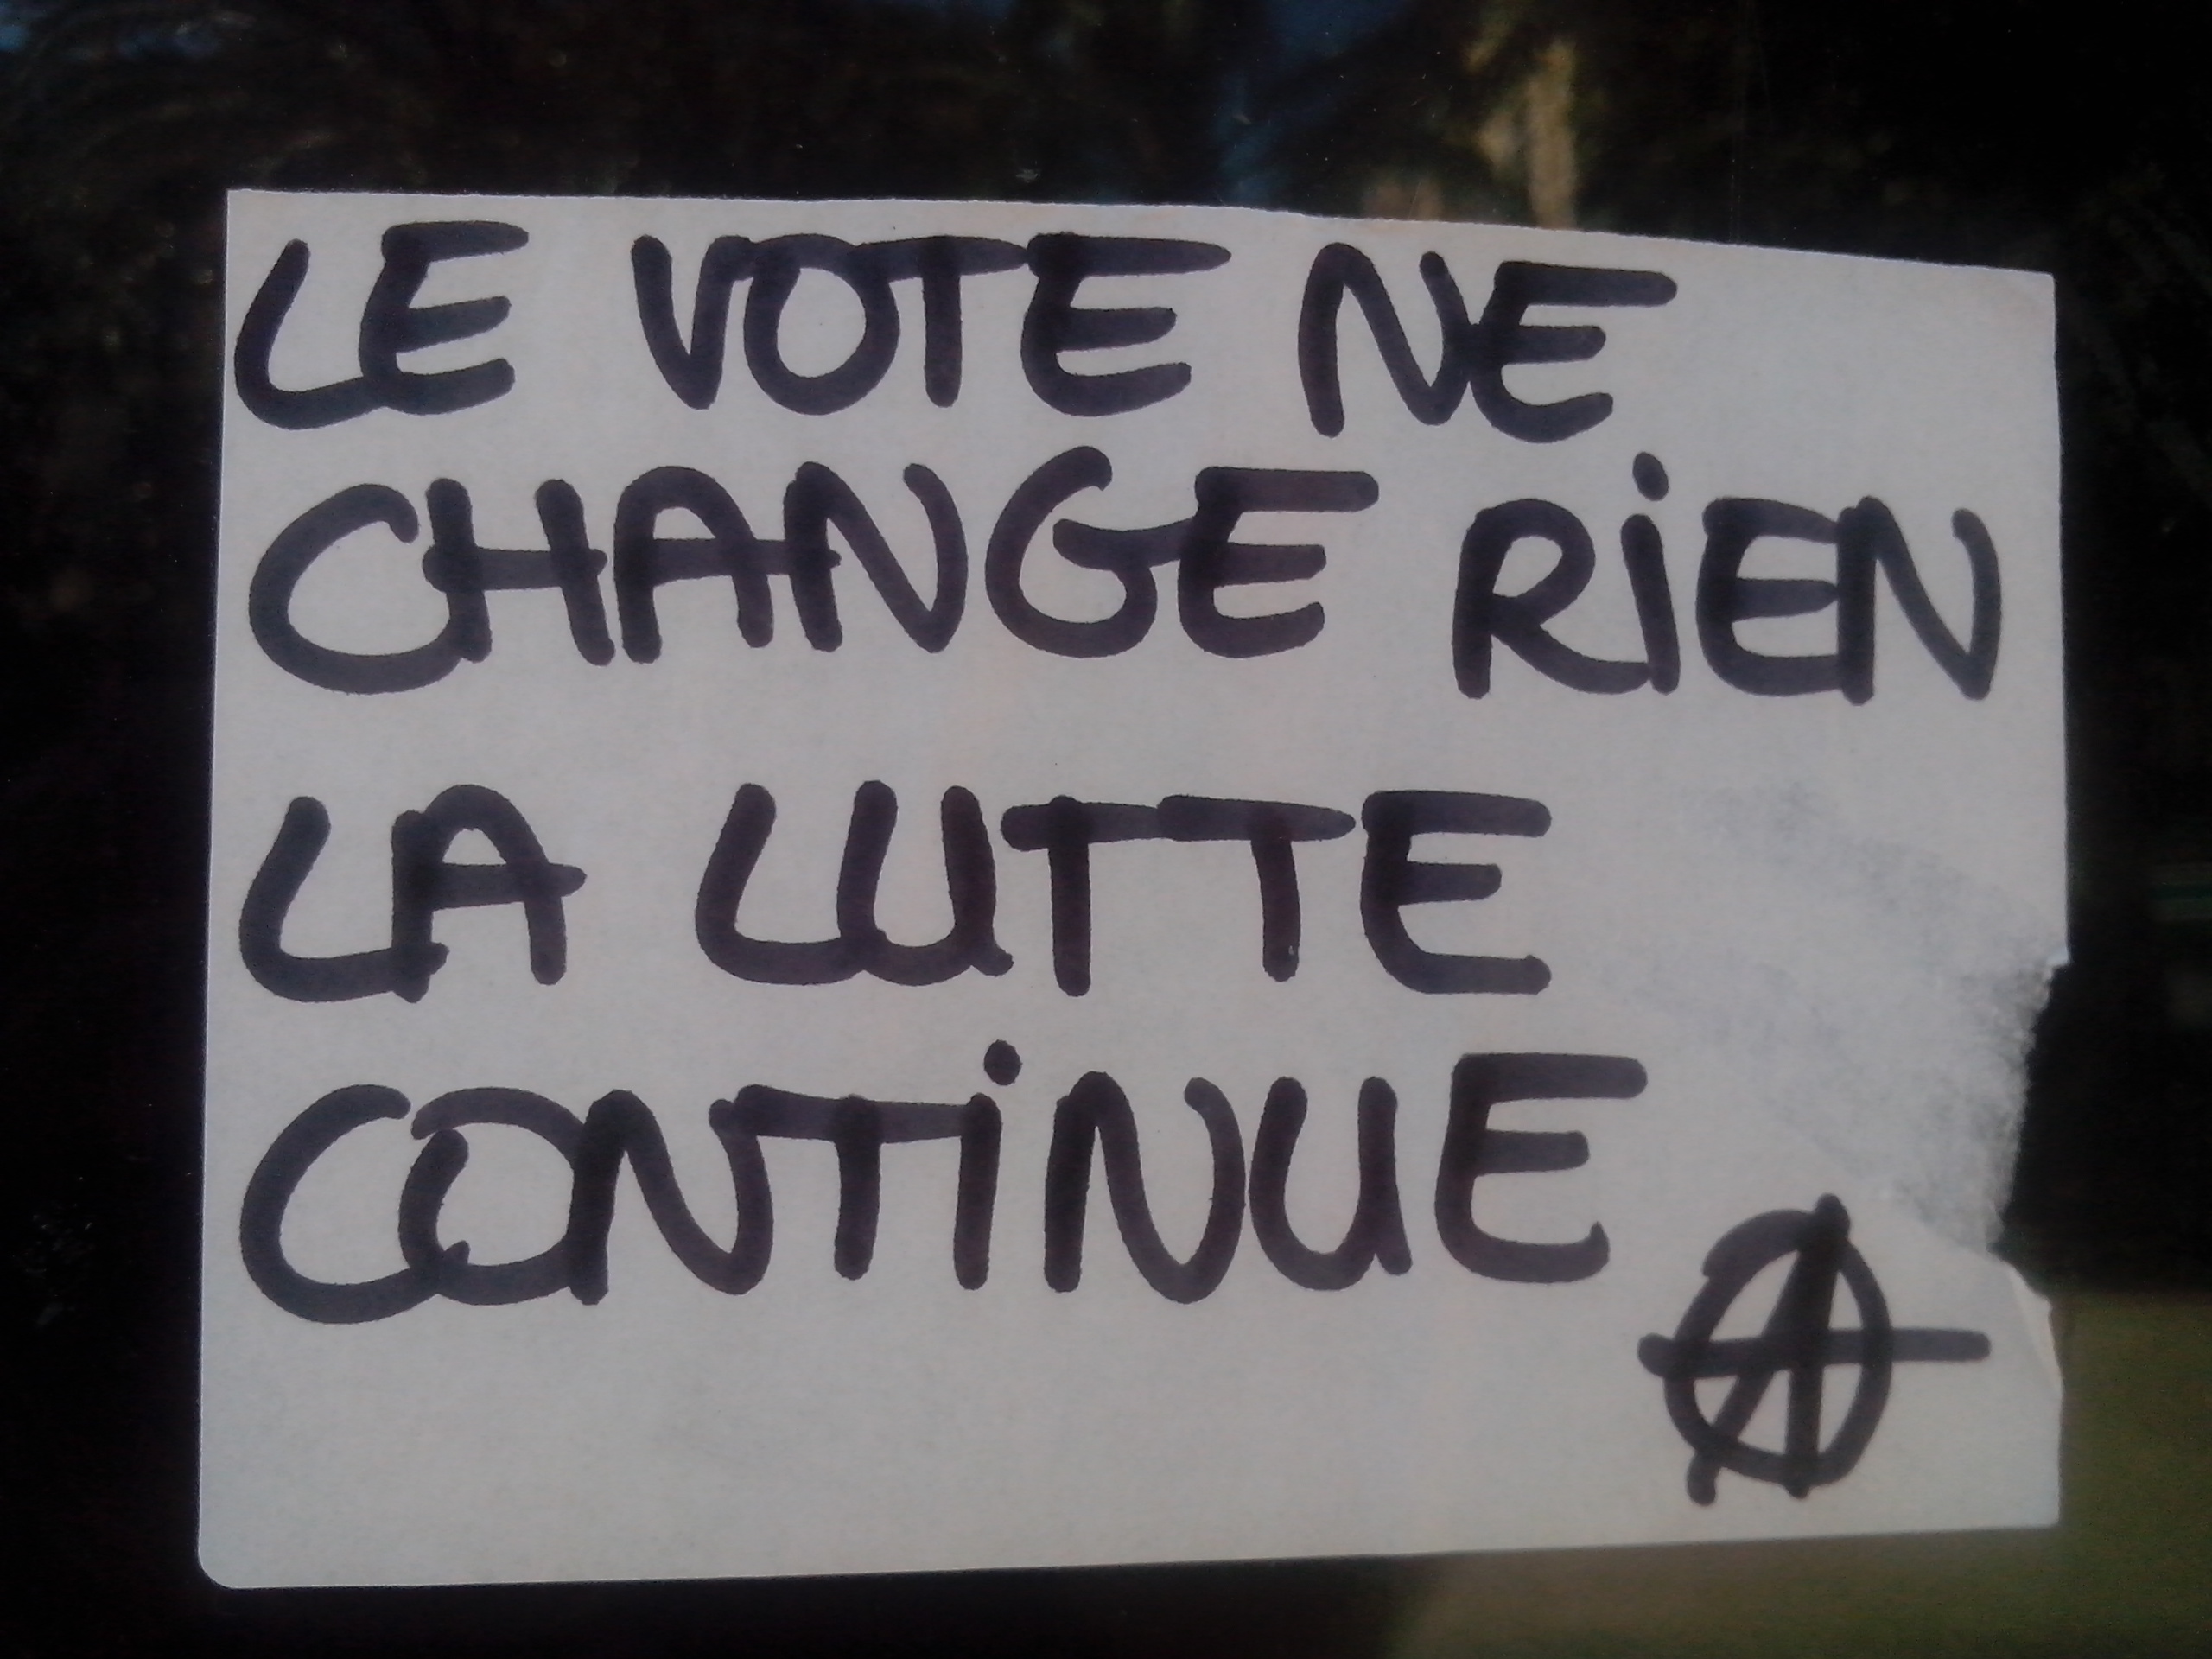 LE VOTE NE
CHANGE RiEN
LA LUTTE
CONTiNUE
Ⓐ